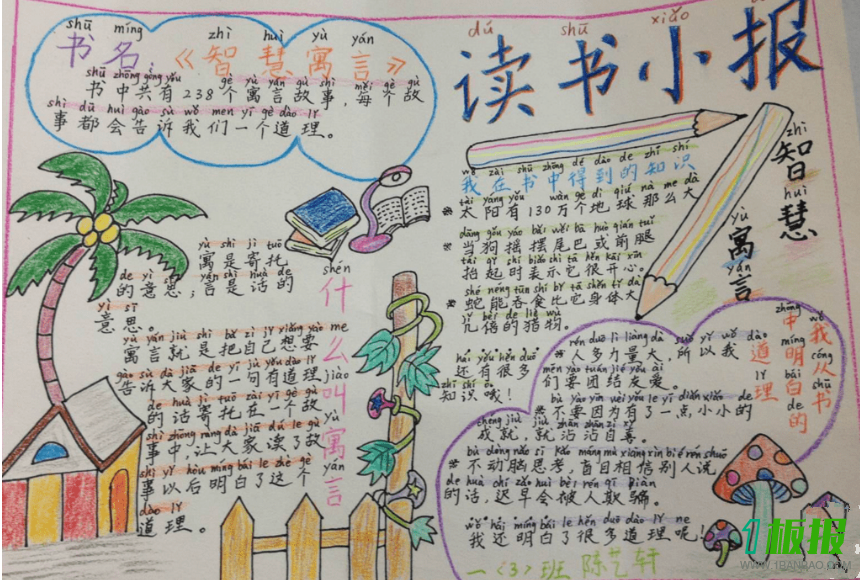 dú shū xiǎo
读书小报
shū míng zhì huì yù yán
书名《智慧寓言》
shū zhōng gòng yǒu gè yù yán gù shì, měi gè gù
书中共有238个寓言故事,每个故
shì dū huì gào sù wǒ men yí gè dào lǐ
事都会告诉我们一个道理。
zhì huì yù yán
智慧寓言
wǒ zài shū zhōng dé dào de zhī shí
我在书中得到的知识
tài yáng yǒu wàn ge dì qiú nà me dà
※太阳有130万个地球那么大
dāng gǒu yáo bǎi wěi bā huò qián tuǐ
※当狗摇摆尾巴或前腿
tái qǐ shí biǎo shì tā hěn kāi xīn
抬起时表示它很开心。
shé néng tūn shí bǐ tā shēn tǐ dà
※蛇能吞食比它身体大
jǐ bèi de liè wù
几倍的猎狗。
hái yǒu hěn duō
还有很多
zhī shí ó
知识哦!
yù shì jì tuō
寓是寄托
de yì sī yán shì huà de
的意思;言是话的
yì sī
意思。
yù yán jiù shì bǎ zì jǐ xiǎng yào
寓言就是把自己想要
gào sù dà jiā de yí jù yǒu dào lǐ
告诉大家的一句有道理
de huà jì tuō zài yí gè gù
的话寄托在一个故
shì zhōng ràng dà jiā dú le gù
事中,让大家读了故
shì yǐ hòu míng bái le zhè gè
事以后明白了这个
dào lǐ
道理。
shén me jiào yù yán
什么叫寓言
wǒ cóng shū
我从书
zhōng míng bái de
中明白的
dào lǐ
道理
rén duō lì liàng dà suǒ yǐ wǒ
※人多力量大,所以我
men yào tuán jié yǒu ài
们要团结友爱。
bù yào yīn wèi yǒu le yì diǎn xiǎo xiǎo de
※不要因为有了一点小小的
chéng jiù jiù zhān zhān zì xǐ
成就,就沾沾自喜。
bù dòng nǎo sī kǎo máng mù xiāng xìn bié rén shuō
※不动脑思考,盲目相信别人说
de huà chí zǎo huì bèi rén qī piàn
的话,迟早会被人欺骗。
wǒ hái míng bái le hěn duō dào lǐ ne
我还明白了很多道理呢!
一(3)班 陈艺轩
1板报
WWW.1BANBAO.COM